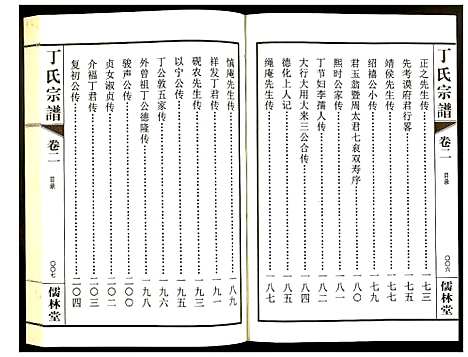 丁氏宗譜
卷二
目录
〇〇六
儒林堂
正之先生传……七三
先考谟府君行畧……七五
靖侯先生传……七七
绍禧公小传……七九
君玉翁暨周太君七衮双寿序……八〇
熙时公家传……八一
丁节妇李孺人传……八四
大行大用大来三公合传……八五
德化上人记……八六
绳庵先生传……八七
慎庵先生传……八九
祥发丁君传……九一
砚农先生传……九三
以宁公传……九五
丁公敦五家传……九六
外曾祖丁公德隆传……九八
骏声公传……一〇〇
贞女淑贞传……一〇二
介福丁君传……一〇三
复初公传……一〇四
丁氏宗譜
卷二
目录
〇〇七
儒林堂